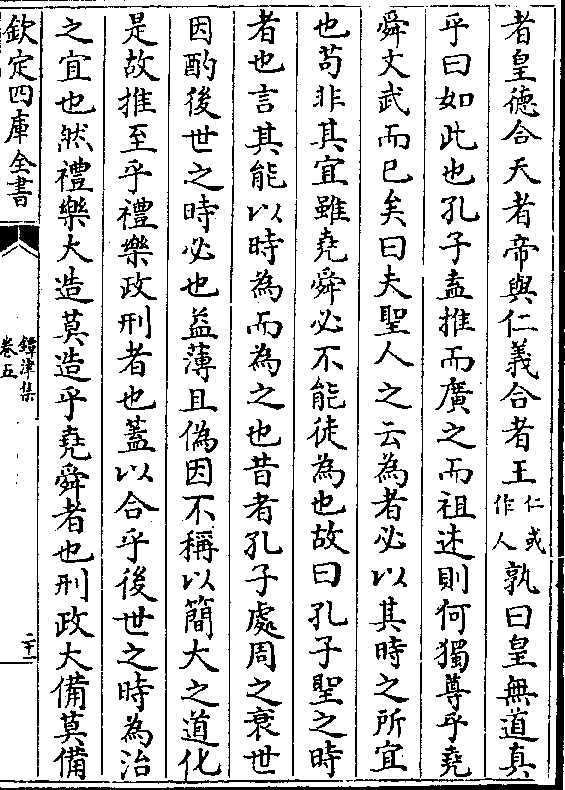 者皇德合天者帝與仁義合者王仁或作人孰曰皇無道真
乎曰如此也孔子盍推而廣之而祖述則何獨尊乎堯
舜文武而已矣曰夫聖人之云為者必以其時之所宜
也苟非其宜雖堯舜必不能徒為也故曰孔子聖之時
者也言其能以時為而為之也昔者孔子處周之衰世
因酌後世之時必也益薄且偽因不稱以簡大之道化
是故推至乎禮樂政刑者也蓋以合乎後世之時為治
之宜也然禮樂大造莫造乎堯舜者也刑政大備莫備
欽定四庫全書
鐔津集
卷五
二十二